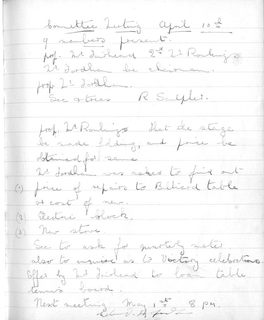 Committee Meeting April 10th
9 members present.
prop. Mr Fairhead 2nd Mr Rawlings
Mr Fordham be chairman.
prop Mr Fordham.
Sec R
prop. Mr Rawlings that the stage
be made folding, and price be
obtained for same
Mr Fordham was asked to find out
(1) price of repairs to Billiard table
& cost of new.
(2) Electric clock.
(3) New stove.
Sec to ask for meter
also to enquire as to Victory celebrations
Offer by Mr Fairhead to loan table
tennis board.
Next meeting May 1st 8 pm.